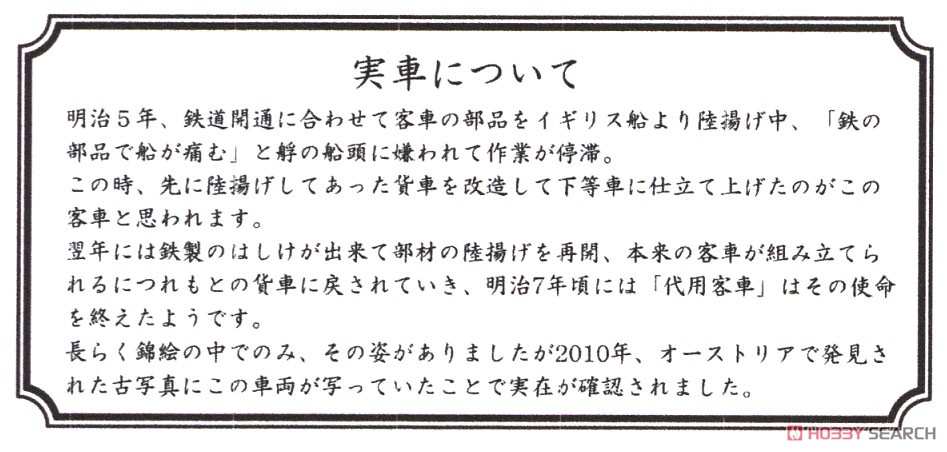 実車について
明治５年、鉄道開通に合わせて客車の部品をイギリス船より陸揚げ中、「鉄の
部品で船が痛む」と艀の船頭に嫌われて作業が停滞。
この時、先に陸揚げしてあった貨車を改造して下等車に仕立て上げたのがこの
客車と思われます。
翌年には鉄製のはしけが出来て部材の陸揚げを再開、本来の客車が組み立てら
れるにつれもとの貨車に戻されていき、明治7年頃には「代用客車」はその使命
を終えたようです。
長らく錦絵の中でのみ、その姿がありましたが2010年、オーストリアで発見さ
れた古写真にこの車両が写っていたことで実在が確認されました。
HOBBY SEARCH